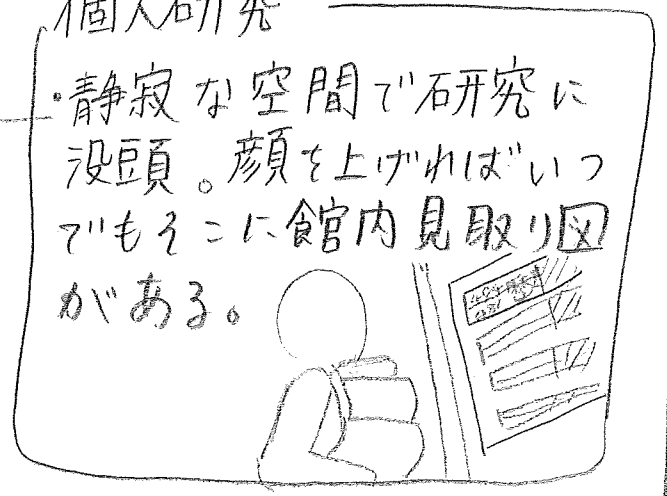 個人研究
・静寂な空間で研究に
没頭。顔を上げればいつ
でもそこに館内見取り図
がある。